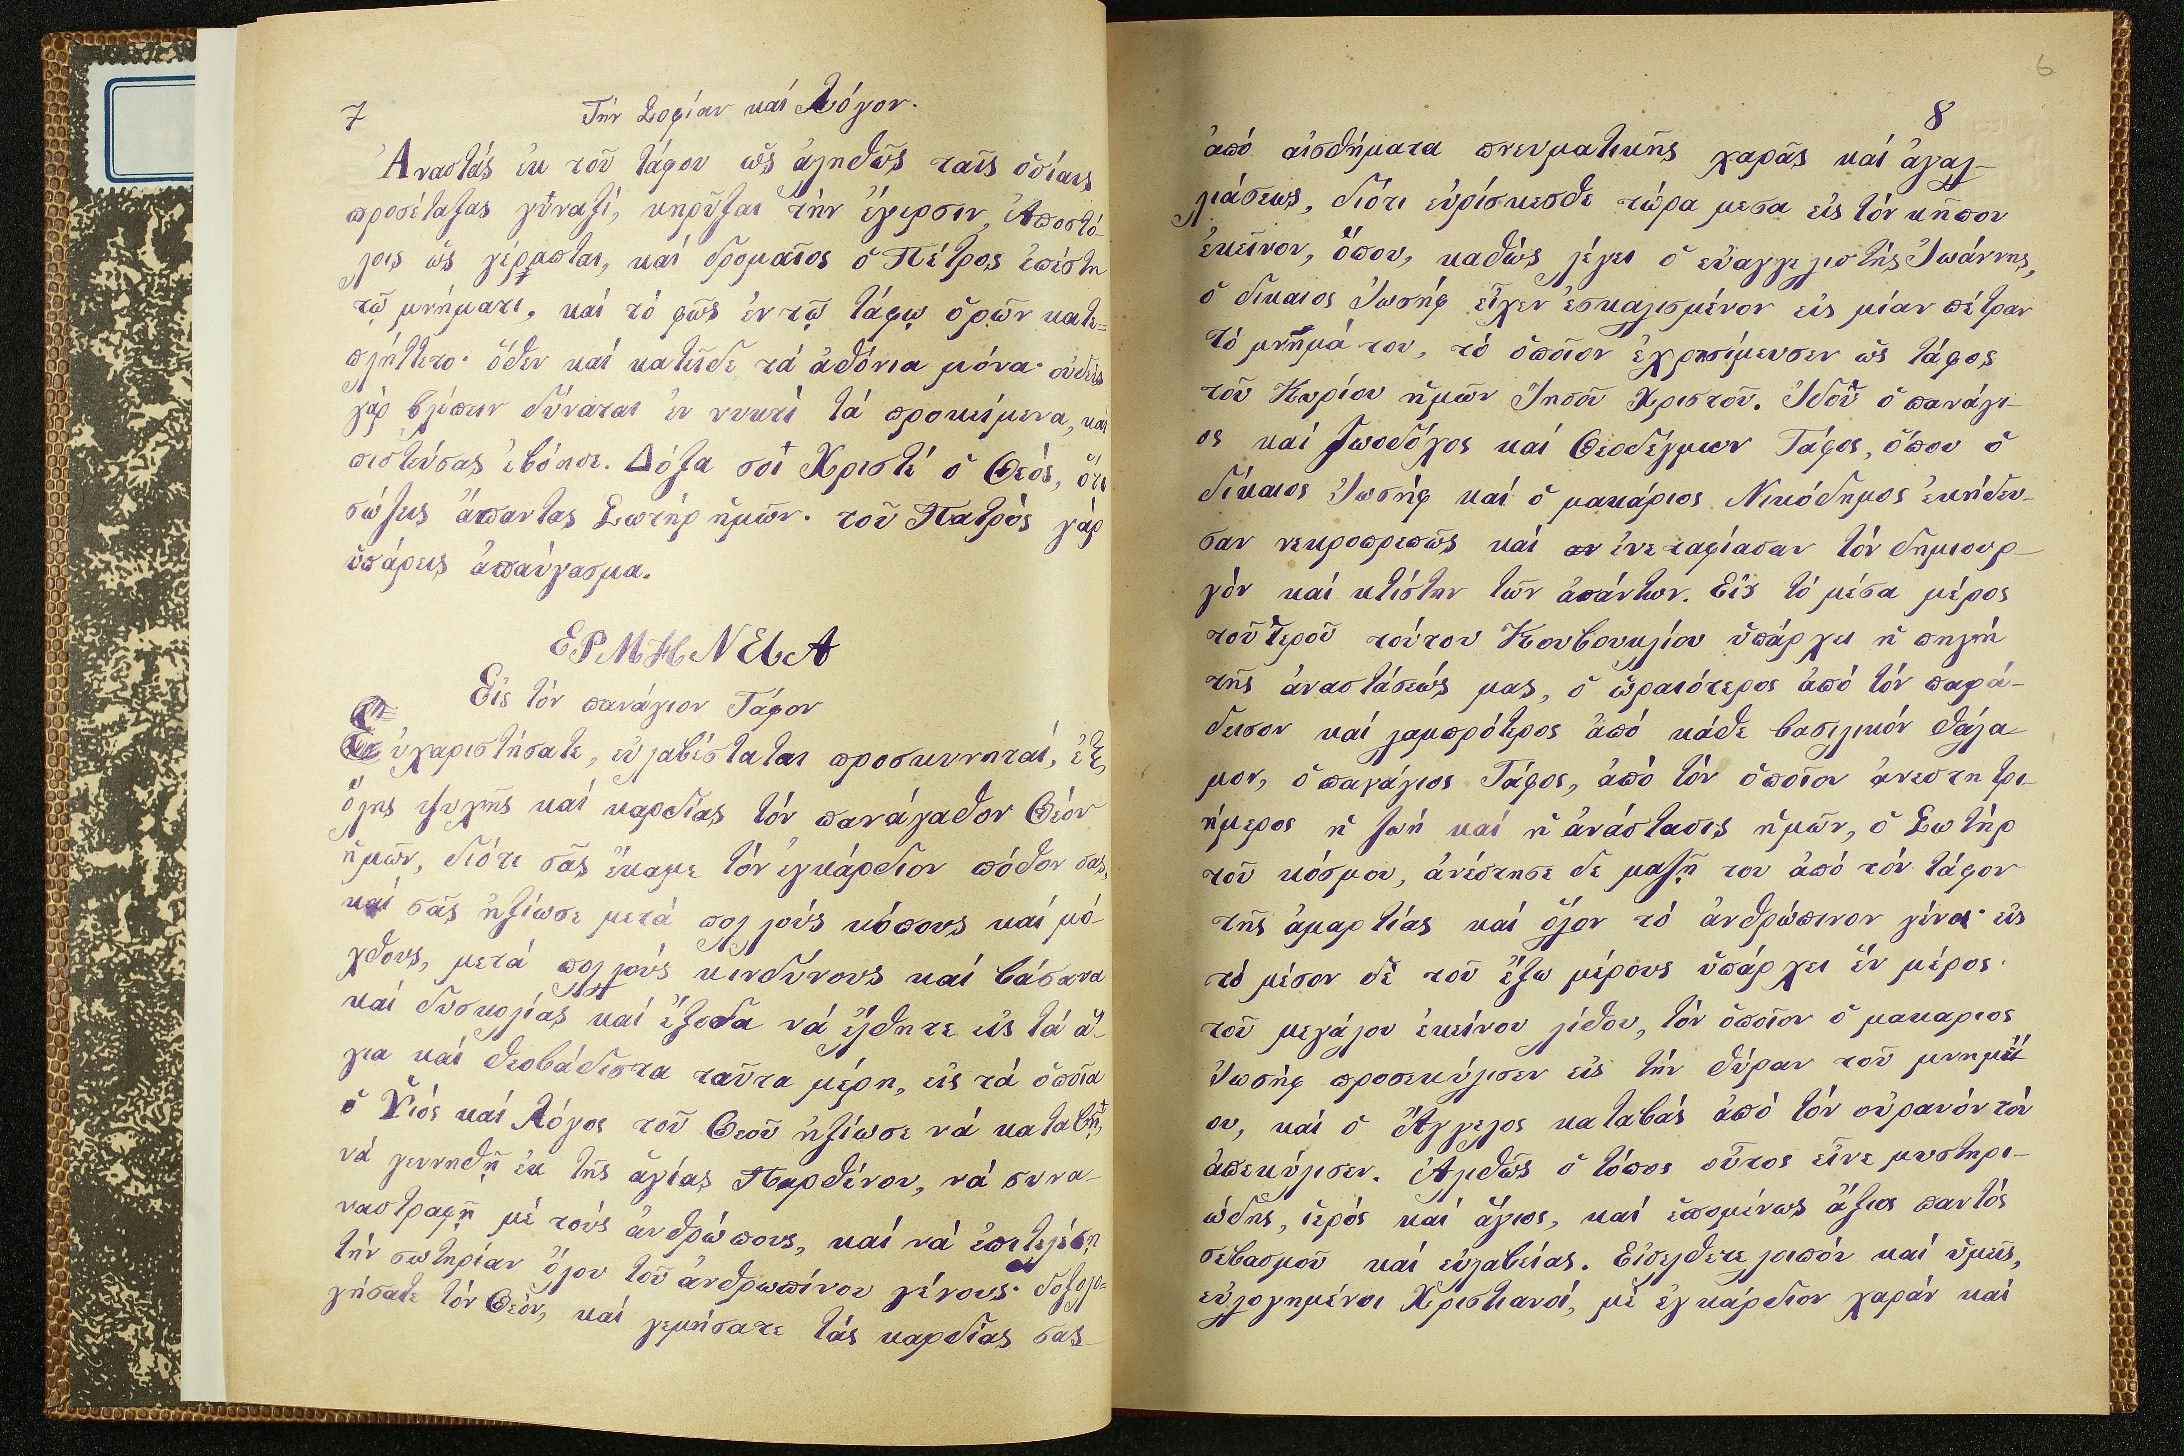 7
Τήν Σοφίαν καί Λόγον.
Ἀναστάς ἐκ τοῦ τάφου ὥς ἀληθῶς ταῖς ὁσίαις
προσέταξας γυναιξί, κηρῦξαι τήν ἔγερσιν, Ἀποστό-
λοις ὡς γέγραπται, καί δρομαῖος ὁ Πέτρος ἐπέστη
τῷ μνήματι, καί τό φῶς ἐν τῷ τάφῳ ὁρῶν κατε=
πλήττετο· ὅθεν καί κατεῖδε τά ὀθόνια μόνα· οὐδείς
γάρ βλέπειν δύναται ἐν νυκτί τά προκείμενα, καί
πιστεύσας ἐβόησε. Δόξα σοι Χριστέ ὁ Θεός, ὅτι
σώζεις ἅπαντας Σωτήρ ἡμῶν. τοῦ Πατρός γάρ
ὑπάρεις ἀπαύγασμα.
ΕΡΜΗΝΕΙΑ
Εἰς τόν πανάγιον Τάφον
Εὐχαριστήσατε, εὐλαβέστατοι προσκυνηταί, ἐξ
ὅλης ψυχῆς καί καρδίας τόν πανάγαθον Θεόν
ἡμῶν, διότι σᾶς ἔκαμε τόν ἐγκάρδιον πόθον σας,
καί σᾶς ἠξίωσε μετά πολλούς κόπους καί μό-
χθους, μετά πολλούς κινδύνους καί βάσανα
καί δυσκολίας καί ἔξοδα νά ἔλθητε εἰς τά ἅ-
για καί θεοβάδιστα ταῦτα μέρη, εἰς τά ὁποῖα
ὁ Υἱός καί Λόγος τοῦ Θεοῦ ἠξίωσε νά καταβῇ,
νά γεννηθῇ ἐκ τῆς ἁγίας Παρθένου, νά συνα-
ναστραφῇ μέ τούς ἀνθρώπους, καί νά ἐπιτελέσῃ
τήν σωτηρίαν ὅλου τοῦ ἀνθρωπίνου γένους· δοξολο=
γήσατε τόν Θεόν, καί γεμήσατε τάς καρδίας σας
6
8
ἀπό αἰσθήματα πνευματικῆς χαρᾶς καί ἀγαλ-
λιάσεως, διότι εὑρίσκεσθε τώρα μεσα εἰς τόν κῆπον
ἐκεῖνον, ὅπου, καθώς λέγει ὁ εὐαγγελιστής Ἰωάννης,
ὁ δικαιος Ἰωσήφ εἶχεν ἐσκαλισμένον εἰς μίαν πέτραν
τό μνῆμά του, τό ὁποῖον ἐχρησίμευσεν ὡς τάφος
τοῦ Κυρίου ἡμῶν Ἰησοῦ Χριστοῦ. Ἰδοῦ ὁ πανάγι-
ος καί ζωοδόχος καί Θεοδέγμων Τάφος, ὅπου ὁ
δίκαιος Ἰωσήφ καί ὁ μακάριος Νικόδημος ἐκήδευ-
σαν νεκροπρεπῶς καί ἐνεταφίασαν τόν δημιουρ-
γόν καί κτίστην τῶν ἁπάντων. Εἰς τό μέσα μέρος
τοῦ ἱεροῦ τούτου Κουβουκλίου ὑπάρχει ἡ πηγή
τῆς ἀναστάσεώς μας, ὁ ὡραιότερος ἀπό τόν παρά-
δεισον καί λαμπρότερος ἀπό κάθε βασιλικόν θάλα-
μον, ὁ πανάγιος Τάφος, ἀπό τόν ὁποῖον ἀνεστη τρι-
ήμερος ἡ ζωή καί ἡ ἀνάστασις ἡμῶν, ὁ Σωτήρ
τοῦ κόσμου, ἀνέστησε δε μαζῇ του ἀπό τόν τάφον
τῆς ἁμαρτίας καί ὅλον τό ἀνθρώπινον γένος· εἰς
τό μέσον δέ τοῦ ἔξω μέρους ὑπάρχει ἕν μέρος·
τοῦ μεγάλου ἐκείνου λίθου, τόν ὁποῖον ὁ μακαριος
Ἰωσήφ προσεκύλισεν εἰς τήν θύραν τοῦ μνημεί
ου, καί ὁ Ἄγγελος καταβάς ἀπό τόν οὐρανόν τόν
ἀπεκύλισεν. Ἀληθῶς ὁ τόπος οὗτος εἶνε μυστηρι-
ώδης, ἱερός καί ἅγιος, καί ἑπομένως ἄξιος παντός
σεβασμοῦ καί εὐλαβείας. Εἰσέλθετε λοιπόν καί ὑμεῖς,
εὐλογημένοι Χριστιανοί, μέ ἐγκάρδιον χαράν καί